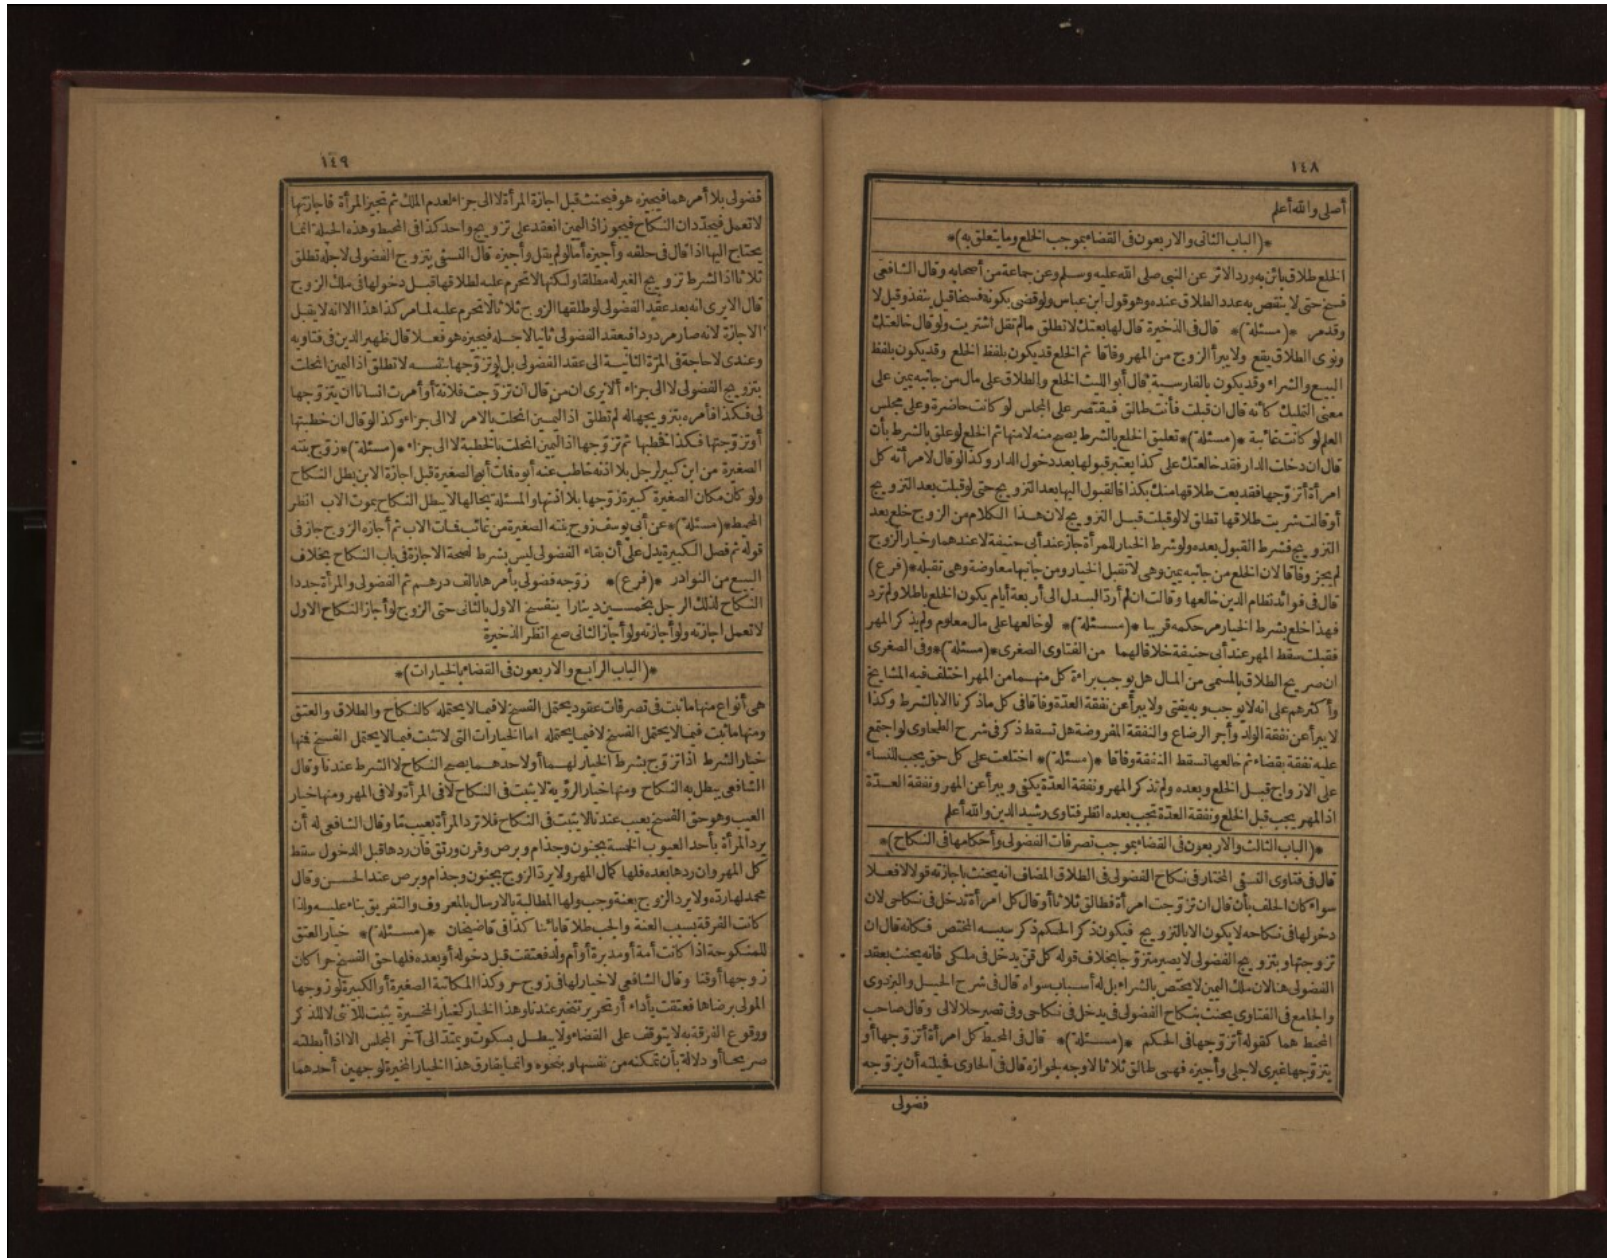 ١٤٨
أصلى والله أعلم
*(الباب الثانى والاربعون فى القضاء بموجب الخلع وما يتعلق به)*
الخلع طلاق بائن به ورد الاثر عن النبى صلى الله عليه وسلم وعن جماعة من أصحابه وقال الشافعى
فسخ حتى لا ينتقص به عدد الطلاق عنده وهو قول ابن عباس ولو قضى بكونه فسخا قيل ينفذ وقيل لا
وقد مر *(مسئلة)* قال فى الذخيرة قال لها بعتك لا تطلق مالم تقل اشتريت ولو قال خالعتك
ونوى الطلاق يقع ولا يبرأ الزوج من المهر وفاقا ثم الخلع قد يكون بلفظ الخلع وقد يكون بلفظ
البيع والشراء وقد يكون بالفارسية قال أبو الليث الخلع والطلاق على مال من جانبه يمين على
معنى التمليك كأنه قال ان قبلت فأنت طالق فيقتصر على المجلس لو كانت حاضرة وعلى مجلس
العلم لو كانت غائبة *(مسئلة)* تعليق الخلع بالشرط يصح منه لا منها ثم الخلع لو علق بالشرط بأن
قال ان دخلت الدار فقد خالعتك على كذا يعتبر قبولها بعد دخول الدار وكذا لو قال لامرأته كل
امرأة أتزوجها فقد بعت طلاقها منك بكذا فالقبول اليها بعد التزويج حتى لو قبلت بعد التزويج
أو قالت شريت طلاقها تطلق لا لو قبلت قبل التزويج لان هذا الكلام من الزوج خلع بعد
التزويج فشرط القبول بعده ولو شرط الخيار للمرأة جاز عند أبى حنيفة لا عندهما وخيار الزوج
لم يجز وفاقا لان الخلع من جانبه يمين وهى لا تقبل الخيار ومن جانبها معاوضة وهى تقبله *(فرع)
قال فى فوائد نظام الدين خالعها وقالت ان لم أرد البدل الى أربعة أيام يكون الخلع باطلا ولم ترد
فهذا خلع بشرط الخيار مر حكمه قريبا *(مسئلة)* لو خالعها على مال معلوم ولم يذكر المهر
فقبلت سقط المهر عند أبى حنيفة خلافا لهما من الفتاوى الصغرى *(مسئلة)* وفى الصغرى
ان صريح الطلاق بالمسمى من المال هل يوجب براءة كل منهما من المهر اختلف فيه المشايخ
وأكثرهم على انه لا يوجب وبه يفتى ولا يبرأ عن نفقة العدة وفاقا فى كل ما ذكرنا الا بالشرط وكذا
لا يبرأ عن نفقة الولد وأجر الرضاع والنفقة المفروضة هل تسقط ذكر فى شرح الطحاوى لو اجتمع
عليه نفقة بقضاء ثم خالعها تسقط النفقة وفاقا *(مسئلة)* اختلعت على كل حق يجب للنساء
على الازواج قبل الخلع وبعده ولم تذكر المهر ونفقة العدة يكفى ويبرأ عن المهر ونفقة العدة
اذ المهر يجب قبل الخلع ونفقة العدة تجب بعده انظر فتاوى رشيد الدين والله أعلم
*(الباب الثالث والاربعون فى القضاء بموجب تصرفات الفضولى وأحكامها فى النكاح)*
قال فى فتاوى النسفى المختار فى نكاح الفضولى فى الطلاق المضاف انه يحنث باجازته قولا لا فعلا
سواء كان الحلف بأن قال ان تزوجت امرأة فطالق ثلاثا أو قال كل امرأة تدخل فى نكاحى لان
دخولها فى نكاحه لا يكون الا بالتزويج فيكون ذكر الحكم ذكر سببه المختص فكأنه قال ان
تزوجتها وبتزويج الفضولى لا يصير متزوجا بخلاف قوله كل قن يدخل فى ملكى فانه يحنث بعقد
الفضولى هنا لان ملك اليمين لا يختص بالشراء بل له أسباب سواه قال فى شرح الحيل والبزدوى
والجامع فى الفتاوى يحنث بنكاح الفضولى فى يدخل فى نكاحى وفى تصير حلالا لى وقال صاحب
المحيط هما كقوله أتزوجها فى الحكم *(مسئلة)* قال فى المحيط كل امرأة أتزوجها أو
يتزوجها غيرى لاجلى وأجيزه فهى طالق ثلاثا لا وجه لجوازه قال فى الحاوى فحيلته أن يزوجه
فضولى
١٤٩
فضولى بلا أمرهما فيجيزه هو فيحنث قبل اجازة المرأة لا الى جزاء لعدم الملك ثم تجيز المرأة فاجازتها
لا تعمل فيجددان النكاح فيجوز اذ اليمين انعقد على تزويج واحد كذا فى المحيط وهذه الحيلة انما
يحتاج اليها اذا قال فى حلفه وأجيزه أما لو لم يقل وأجيزه قال النسفى يتزوج الفضولى لاجله تطلق
ثلاثا اذ الشرط تزويج الغير له مطلقا ولكنها لا تحرم عليه لطلاقها قبل دخولها فى ملك الزوج
قال الا يرى انه بعد عقد الفضولى لو طلقها الزوج ثلاثا لا تحرم عليه لما مر كذا هذا الا انه لا يقبل
الاجازة لانه صار مردودا فيعقد الفضولى ثانيا لاجله فيجيزه هو فعلا قال ظهير الدين فى فتاويه
وعندى لا حاجة فى المرة الثانية الى عقد الفضولى بل لو تزوجها بنفسه لا تطلق اذ اليمين انحلت
بتزويج الفضولى لا الى جزاء ألا يرى ان من قال ان تزوجت فلانة أو أمرت انسانا ان يتزوجها
لى فكذا فأمره بتزويجها له لم تطلق اذ اليمين انحلت بالامر لا الى جزاء وكذا لو قال ان خطبتها
أو تزوجتها فكذا فخطبها ثم تزوجها اذ اليمين انحلت بالخطبة لا الى جزاء *(مسئلة)* زوج بنته
الصغيرة من ابن كبير لرجل بلا اذنه خاطب عنه أبوه فمات أبو الصغيرة قبل اجازة الابن بطل النكاح
ولو كان مكان الصغيرة كبيرة زوجها بلا اذنها والمسئلة بحالها لا يبطل النكاح بموت الاب انظر
المحيط *(مسئلة)* عن أبى يوسف زوج بنته الصغيرة من غائب فمات الاب ثم أجازه الزوج جاز فى
قوله ثم فصل الكبيرة يدل على أن بقاء الفضولى ليس بشرط لصحة الاجازة فى باب النكاح بخلاف
البيع من النوادر *(فرع)* زوجه فضولى بأمرها بألف درهم ثم الفضولى والمرأة جددا
النكاح لذلك الرجل بخمسين دينارا ينفسخ الاول بالثانى حتى الزوج لو أجاز النكاح الاول
لا تعمل اجازته ولو أجازته ولو أجاز الثانى صح انظر الذخيرة
*(الباب الرابع والاربعون فى القضاء بالخيارات)*
هى أنواع منها ما ثبت فى تصرفات عقود يحتمل الفسخ لا فيما لا يحتمله كالنكاح والطلاق والعتق
ومنها ما ثبت فيما لا يحتمل الفسخ لا فيما يحتمله اما الخيارات التى لا تثبت فيما لا يحتمل الفسخ فمنها
خيار الشرط اذا تزوج بشرط الخيار لهما أو لاحدهما يصح النكاح لا الشرط عندنا وقال
الشافعى يبطل به النكاح ومنها خيار الرؤية لا يثبت فى النكاح لا فى المرأة ولا فى المهر ومنها خيار
العيب وهو حق الفسخ بعيب عندنا لا يثبت فى النكاح فلا ترد المرأة بعيب ما وقال الشافعى له أن
يرد المرأة بأحد العيوب الخمسة بجنون وجذام وبرص وقرن ورتق فان ردها قبل الدخول سقط
كل المهر وان ردها بعده فلها كمال المهر ولا يرد الزوج بجنون وجذام وبرص عند الحسن وقال
محمد لها رده ولا يرد الزوج بعنة وجب ولها المطالبة بالارسال بالمعروف والتفريق بناء عليه ولذا
كانت الفرقة بسبب العنة والجب طلاقا بائنا كذا فى قاضيخان *(مسئلة)* خيار العتق
للمنكوحة اذا كانت أمة أو مدبرة أو أم ولد فعتقت قبل دخوله أو بعده فلها حق الفسخ حرا كان
زوجها أو قنا وقال الشافعى لا خيار لها فى زوج حر وكذا المكاتبة الصغيرة أو الكبيرة لو زوجها
المولى برضاها فعتقت بأداء أو تحرير تتخير عندنا وهذا الخيار كخيار المخيرة يثبت للانثى لا للذكر
ووقوع الفرقة به لا يتوقف على القضاء ولا يبطل بسكوت ويمتد الى آخر المجلس الا اذا أبطلته
صريحا أو دلالة بأن تمكنه من نفسها وبنحوه وانما يفارق هذا الخيار المخيرة لوجهين أحدهما